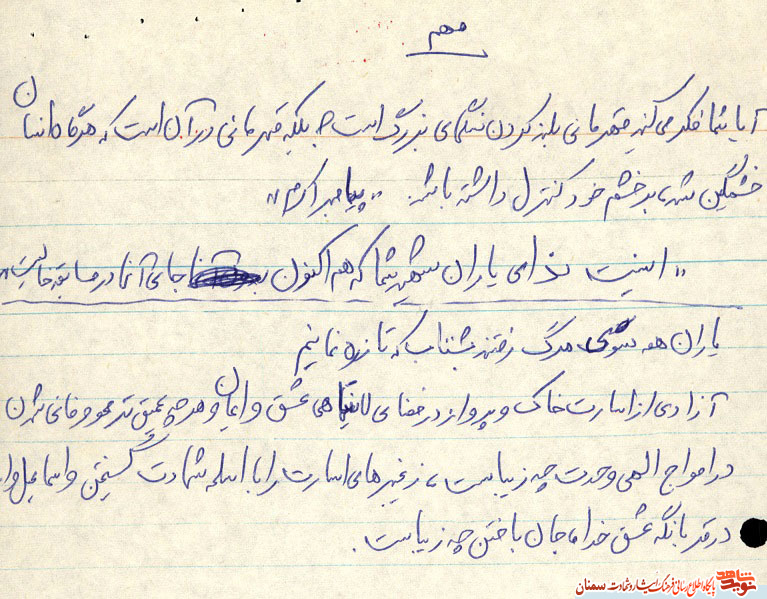 مهم
آیا شما فکر می کنید قهرمانی بلند کردن سنگهای بزرگ است ؟ بلکه قهرمانی در آن است که هرگاه انسان
خشمگین شد، بر خشم خود کنترل داشته باشد. "پیامبر اکرم"
"اینست ندای یاران شهید شما که هم اکنون جای آنها در مسابقه خالیست"
یاران همه سوی مرگ رفتند بشتاب که تا ز ره نمانیم
آزادی از اسارت خاک و پرواز در فضای لایتناهی عشق و ایمان و هر چه عمیق تر محو و فانی شدن
در امواج الهی وحدت چه زیباست، زنجیرهای اسارت را با اسلحه شهادت گسیختن و اسماعیل وار
در قربانگه عشق خدا، جان باختن چه زیباست.
نوید شاهد پایگاه اطلاع رسانی فرهنگ ایثار و شهادت سمنان